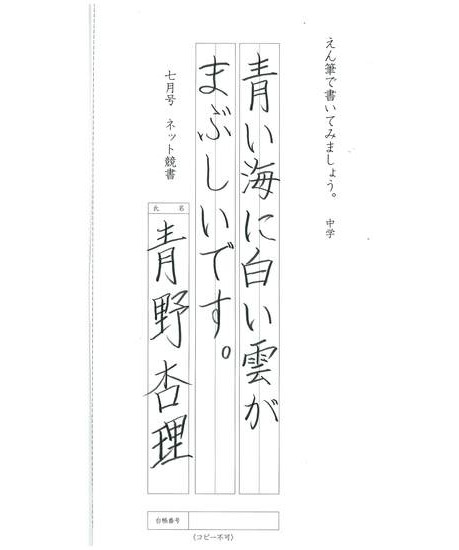 えん筆で書いてみましょう。 中学
青い海に白い雲が
まぶしいです。
七月号 ネット競書
氏 名
青野杏理
台帳番号
(コピー不可)